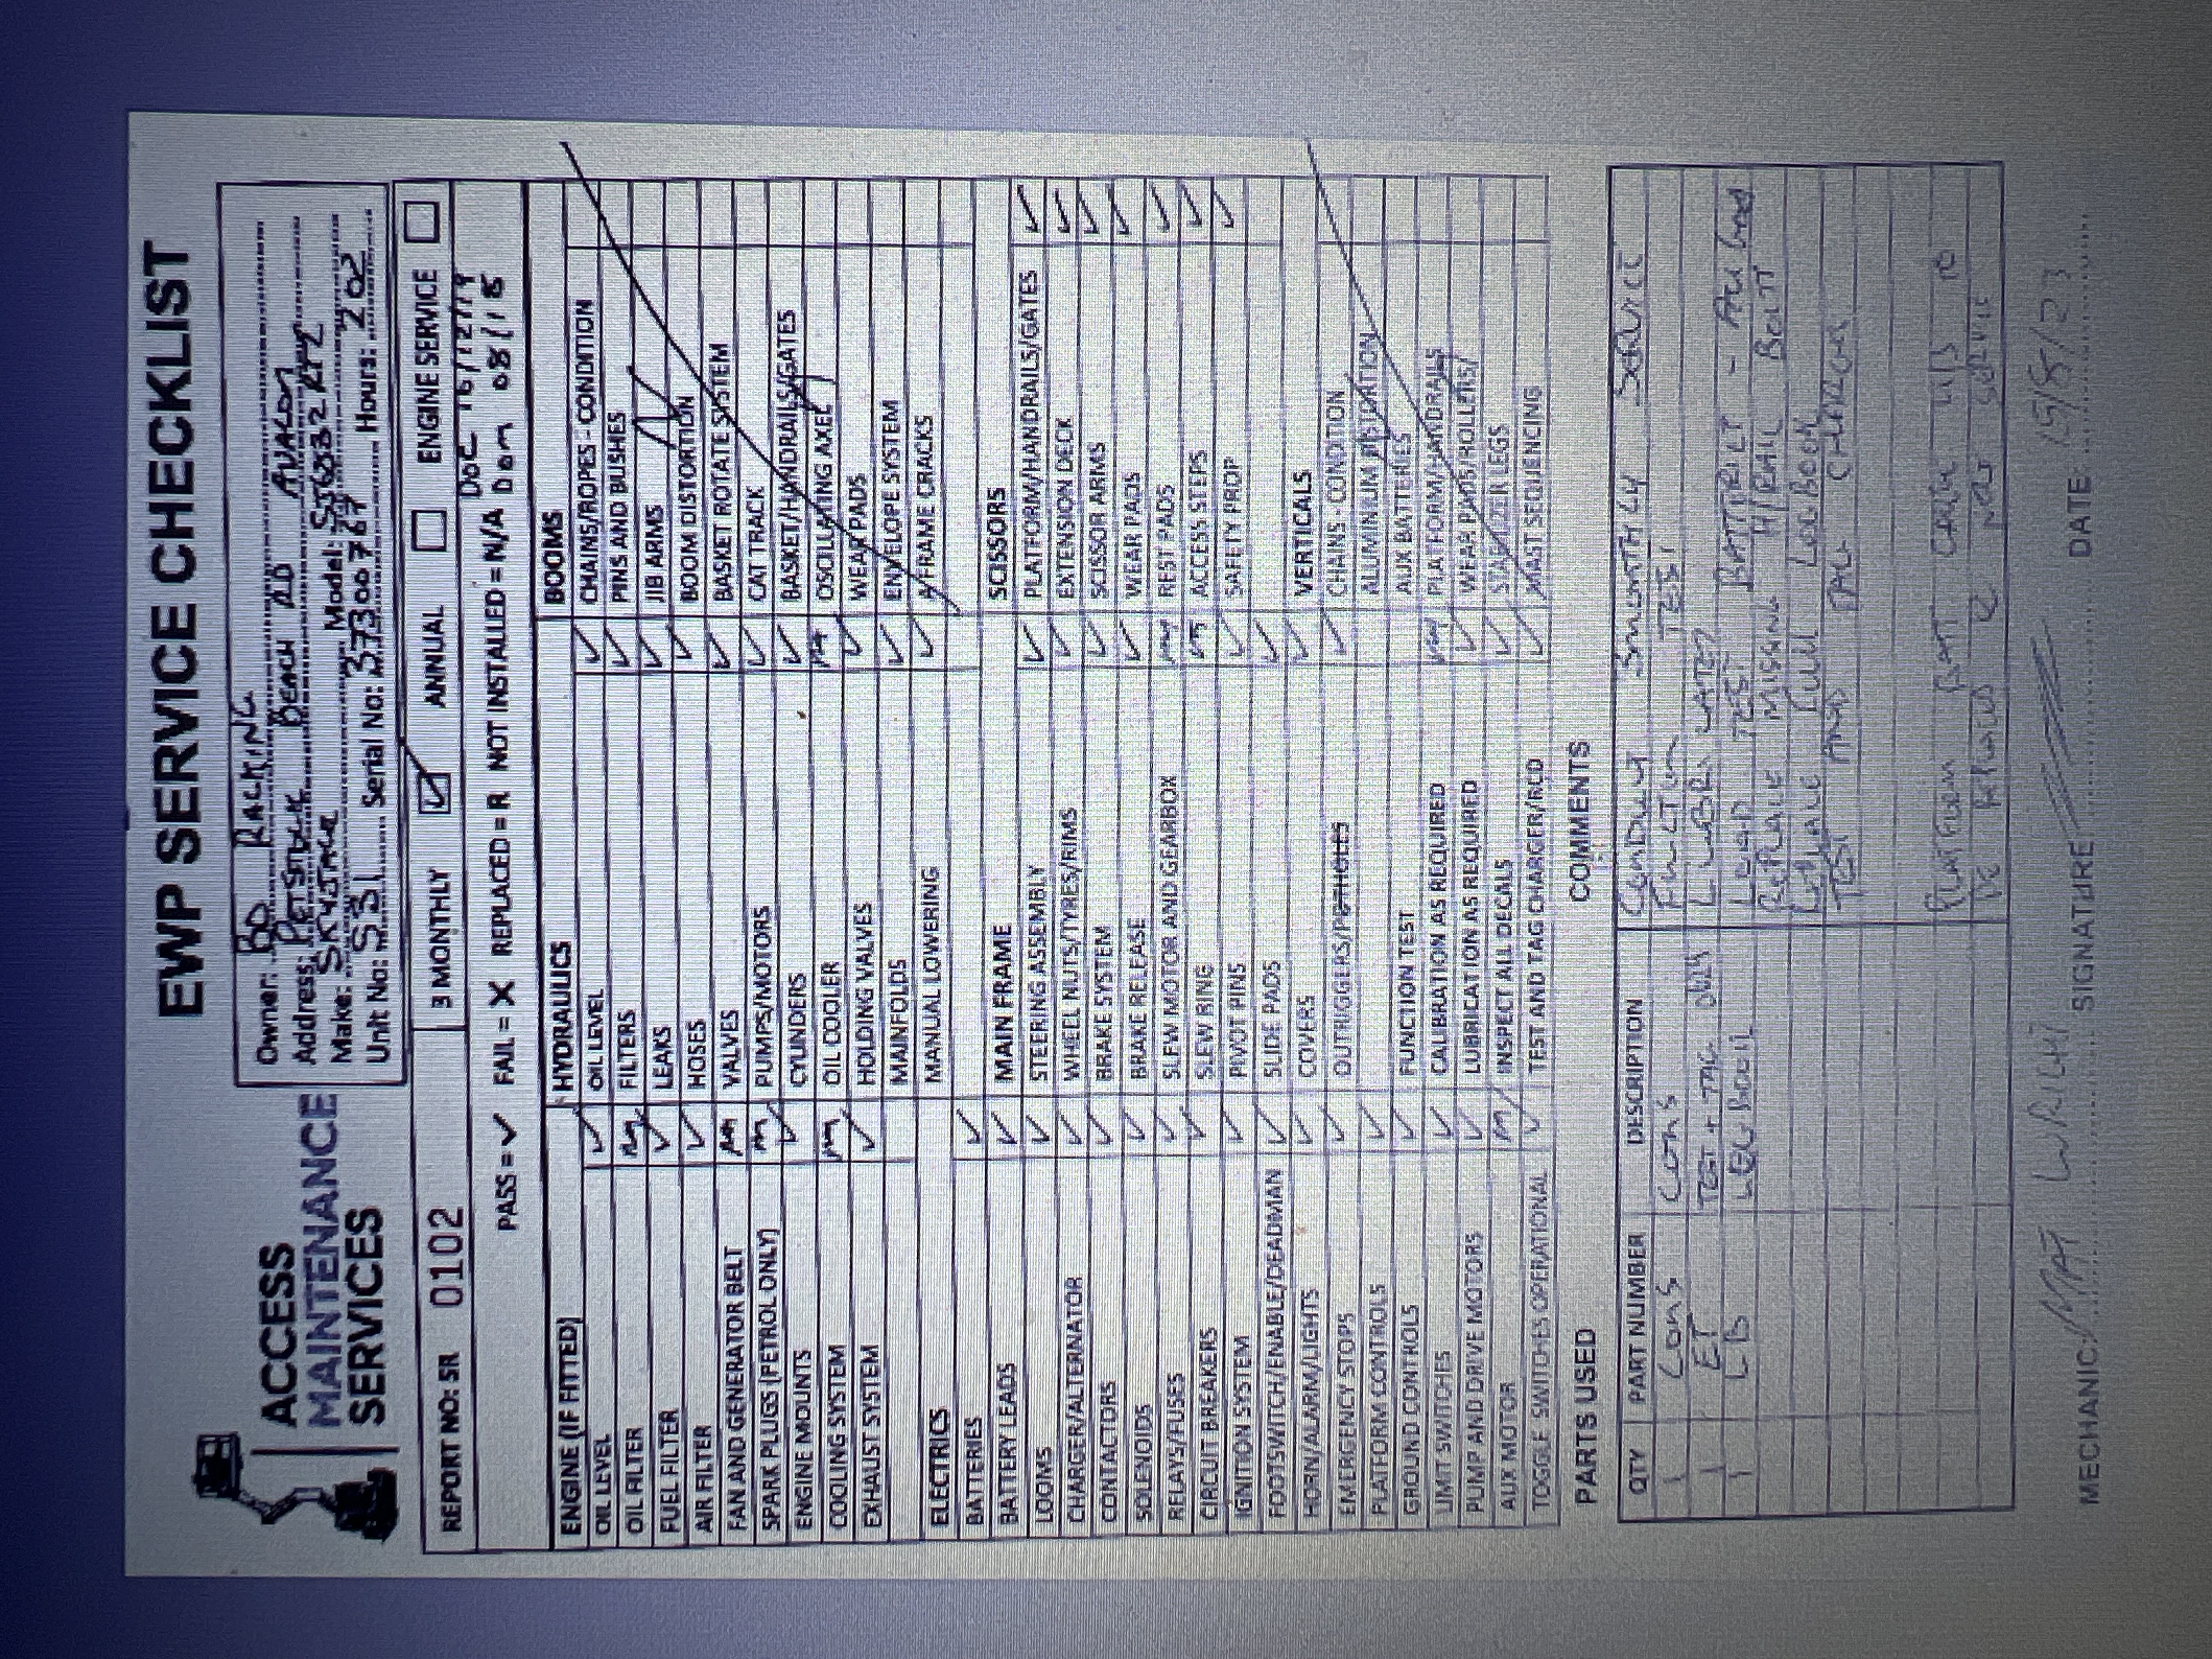 EWP SERVICE CHECKLIST
ACCESS
MAINTENANCE
SERVICES
Owner: BD RACKING
Address: PETSTOCK BEACH RD AVALON
Make: SKYJACK Model: SJ6832RTZ
Unit No: S31 Serial No: 37300767 Hours: 202
REPORT NO: SR 0102
3 MONTHLY ☑ ANNUAL ☐ ENGINE SERVICE ☐
DOC 16/12/19
PASS = ✓ FAIL = X REPLACED = R NOT INSTALLED = N/A DOM 08/18
ENGINE (IF FITTED)
OIL LEVEL ✓
OIL FILTER
FUEL FILTER ✓
AIR FILTER ✓
FAN AND GENERATOR BELT
SPARK PLUGS (PETROL ONLY)
ENGINE MOUNTS ✓
COOLING SYSTEM
EXHAUST SYSTEM ✓
ELECTRICS
BATTERIES ✓
BATTERY LEADS ✓
LOOMS ✓
CHARGER/ALTERNATOR ✓
CONTACTORS ✓
SOLENOIDS ✓
RELAYS/FUSES ✓
CIRCUIT BREAKERS ✓
IGNITION SYSTEM ✓
FOOTSWITCH/ENABLE/DEADMAN ✓
HORN/ALARM/LIGHTS ✓
EMERGENCY STOPS ✓
PLATFORM CONTROLS ✓
GROUND CONTROLS ✓
LIMIT SWITCHES ✓
PUMP AND DRIVE MOTORS ✓
AUX MOTOR
TOGGLE SWITCHES OPERATIONAL ✓
HYDRAULICS
OIL LEVEL ✓
FILTERS ✓
LEAKS ✓
HOSES ✓
VALVES ✓
PUMPS/MOTORS ✓
CYLINDERS ✓
OIL COOLER
HOLDING VALVES ✓
MAINFOLDS ✓
MANUAL LOWERING ✓
MAIN FRAME
STEERING ASSEMBLY ✓
WHEEL NUTS/TYRES/RIMS ✓
BRAKE SYSTEM ✓
BRAKE RELEASE ✓
SLEW MOTOR AND GEARBOX
SLEW RING
PIVOT PINS ✓
SLIDE PADS ✓
COVERS ✓
OUTRIGGERS/POTHOLES ✓
FUNCTION TEST
CALIBRATION AS REQUIRED
LUBRICATION AS REQUIRED ✓
INSPECT ALL DECALS ✓
TEST AND TAG CHARGER/RCD ✓
BOOMS
CHAINS/ROPES - CONDITION
PINS AND BUSHES
JIB ARMS
BOOM DISTORTION
BASKET ROTATE SYSTEM
CAT TRACK
BASKET/HANDRAILS/GATES
OSCILLATING AXEL
WEAR PADS
ENVELOPE SYSTEM
A/FRAME CRACKS
SCISSORS
PLATFORM/HANDRAILS/GATES ✓
EXTENSION DECK ✓
SCISSOR ARMS ✓
WEAR PADS ✓
REST PADS ✓
ACCESS STEPS ✓
SAFETY PROP ✓
VERTICALS
CHAINS - CONDITION
ALUMINIUM DISTORTION
AUX BATTERIES
PLATFORM/HANDRAILS
WEAR PADS/ROLLERS/
STABILIZER LEGS
MAST SEQUENCING
PARTS USED
COMMENTS
QTY PART NUMBER DESCRIPTION
1 CONS CONS
1 ET TEST + TAG ONLY
1 LB LOG BOOK
CONDUCT 3MONTHLY SERVICE
FUNCTION TEST
LUBRICATE
LOAD TEST BATTERY - ALL GOOD
REPLACE MISSING H/RAIL BOLT
REPLACE FULL LOG BOOK
TEST AND TAG CHARGER
PLATFORM BATT
BE @ NXT SERVICE
MECHANIC: MAT WRIGHT SIGNATURE DATE 15/8/23